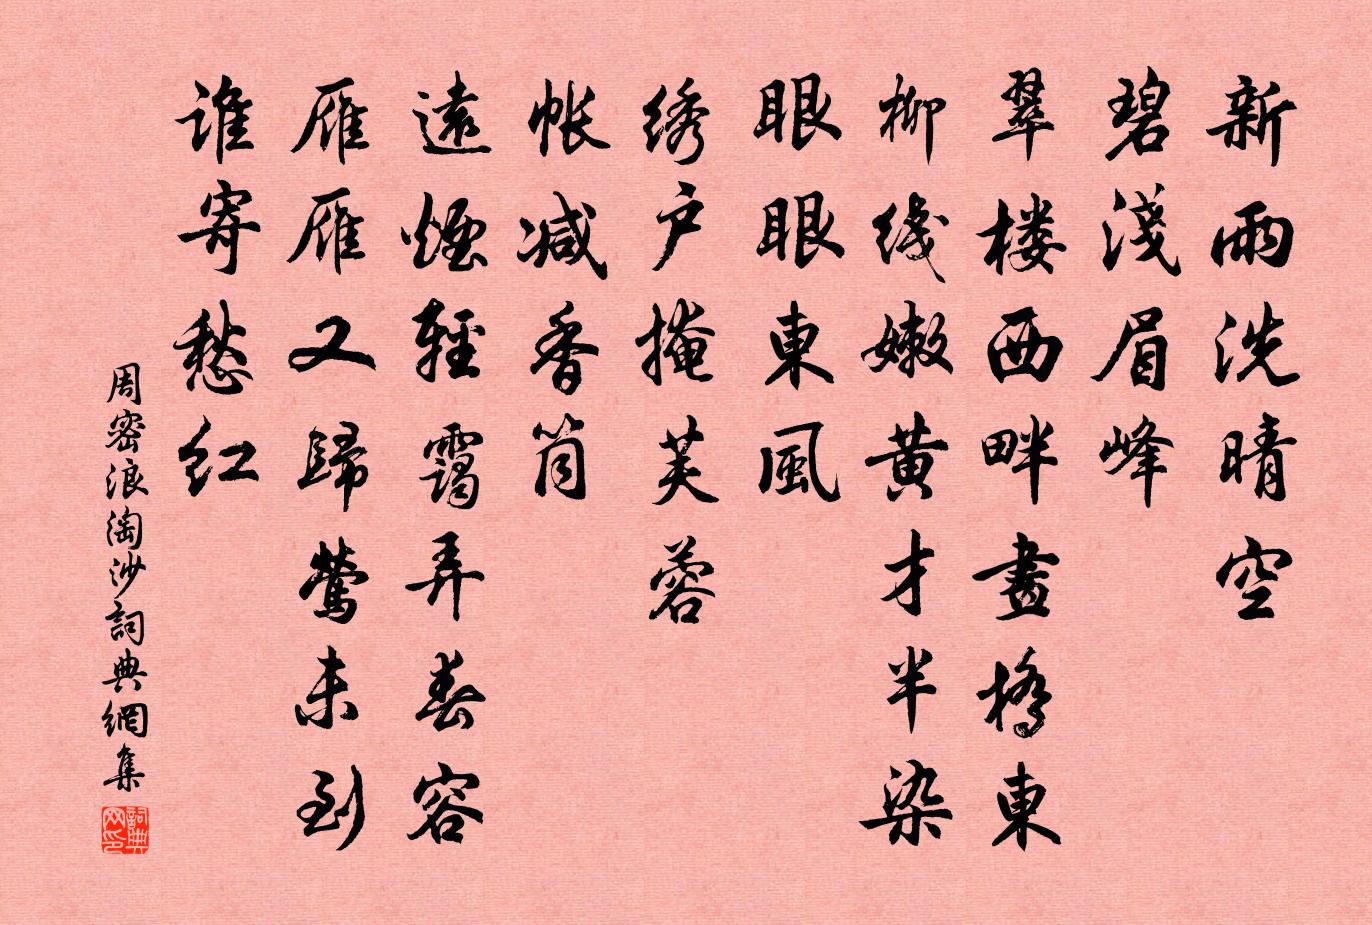 新雨洗晴空
碧淺眉峰
翠楼西畔畫橋東
柳綫嫩黄才半染
眼眼東風
绣户掩芙蓉
帐减香筒
遠煙輕靄弄春容
雁雁又歸鶯未到
谁寄愁红
周密浪淘沙詞典網集
詞典网印